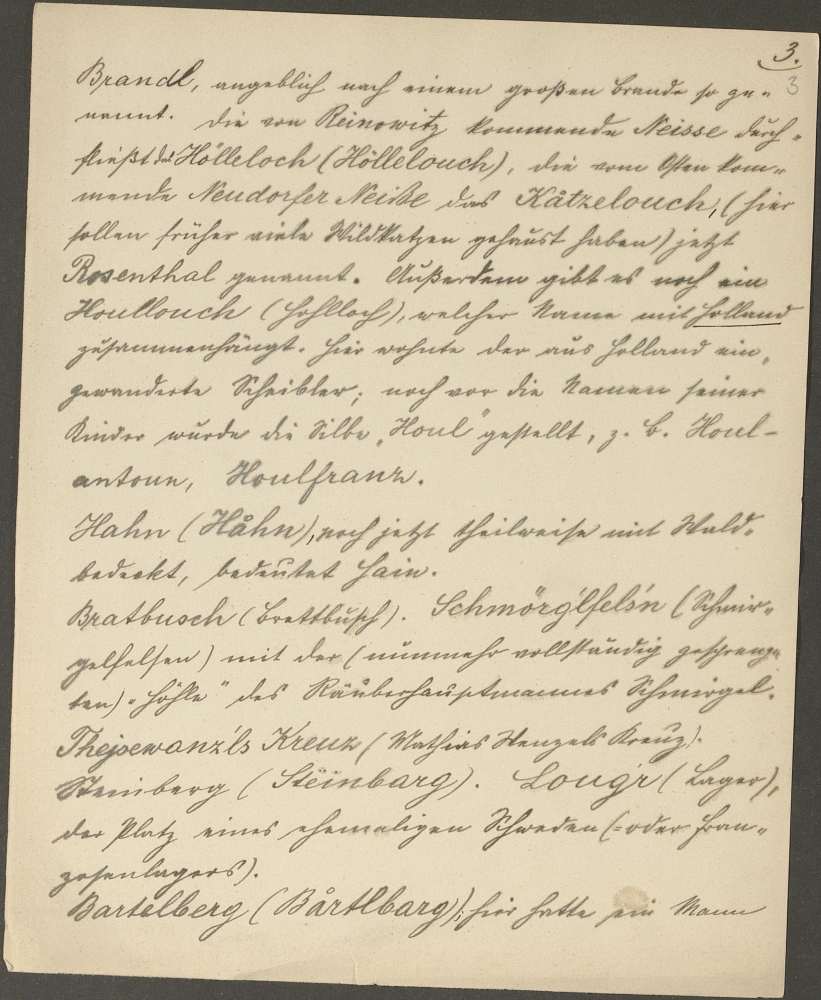 3.
3
Brandl, angeblich nach einem großen Brande so ge-
nannt. Die von Reinowitz kommende Neisse durch-
fließt das Hölleloch (Höllelouch), die vom Osten kom-
mende Neudorfer Neiße das Kåtzelouch, (hier
sollen früher viele Wildkatzen gehaust haben) jetzt
Rosenthal genannt. Außerdem gibt es noch ein
Houllouch (Hohlloch), welcher Name mit Holland
zusammenhängt. Hier wohnte der aus Holland ein-
gewanderte Scheibler; noch vor die Namen seiner
Kinder wurde die Silbe „Houl" gestellt, z. B. Houl-
antonn, Houlfranz.
Hahn (Håhn), noch jetzt theilweise mit Wald-
bedeckt, bedeutet Hain.
Bratbusch (Brettbusch). Schmörg'lfels'n (Schmir-
gelfelsen) mit der (nunmehr vollständig gespreng-
ten) „Höhle" des Räuberhauptmannes Schmirgel.
Thejsewanz'ls Kreuz (Mathias Wenzels Kreuz).
Steinberg (Stëinbarg). Loug'r (Lager),
der Platz eines ehemaligen Schweden (=oder Fran-
zosenlagers).
Bartelberg (Bårtlbarg), hier hatte ein Mann